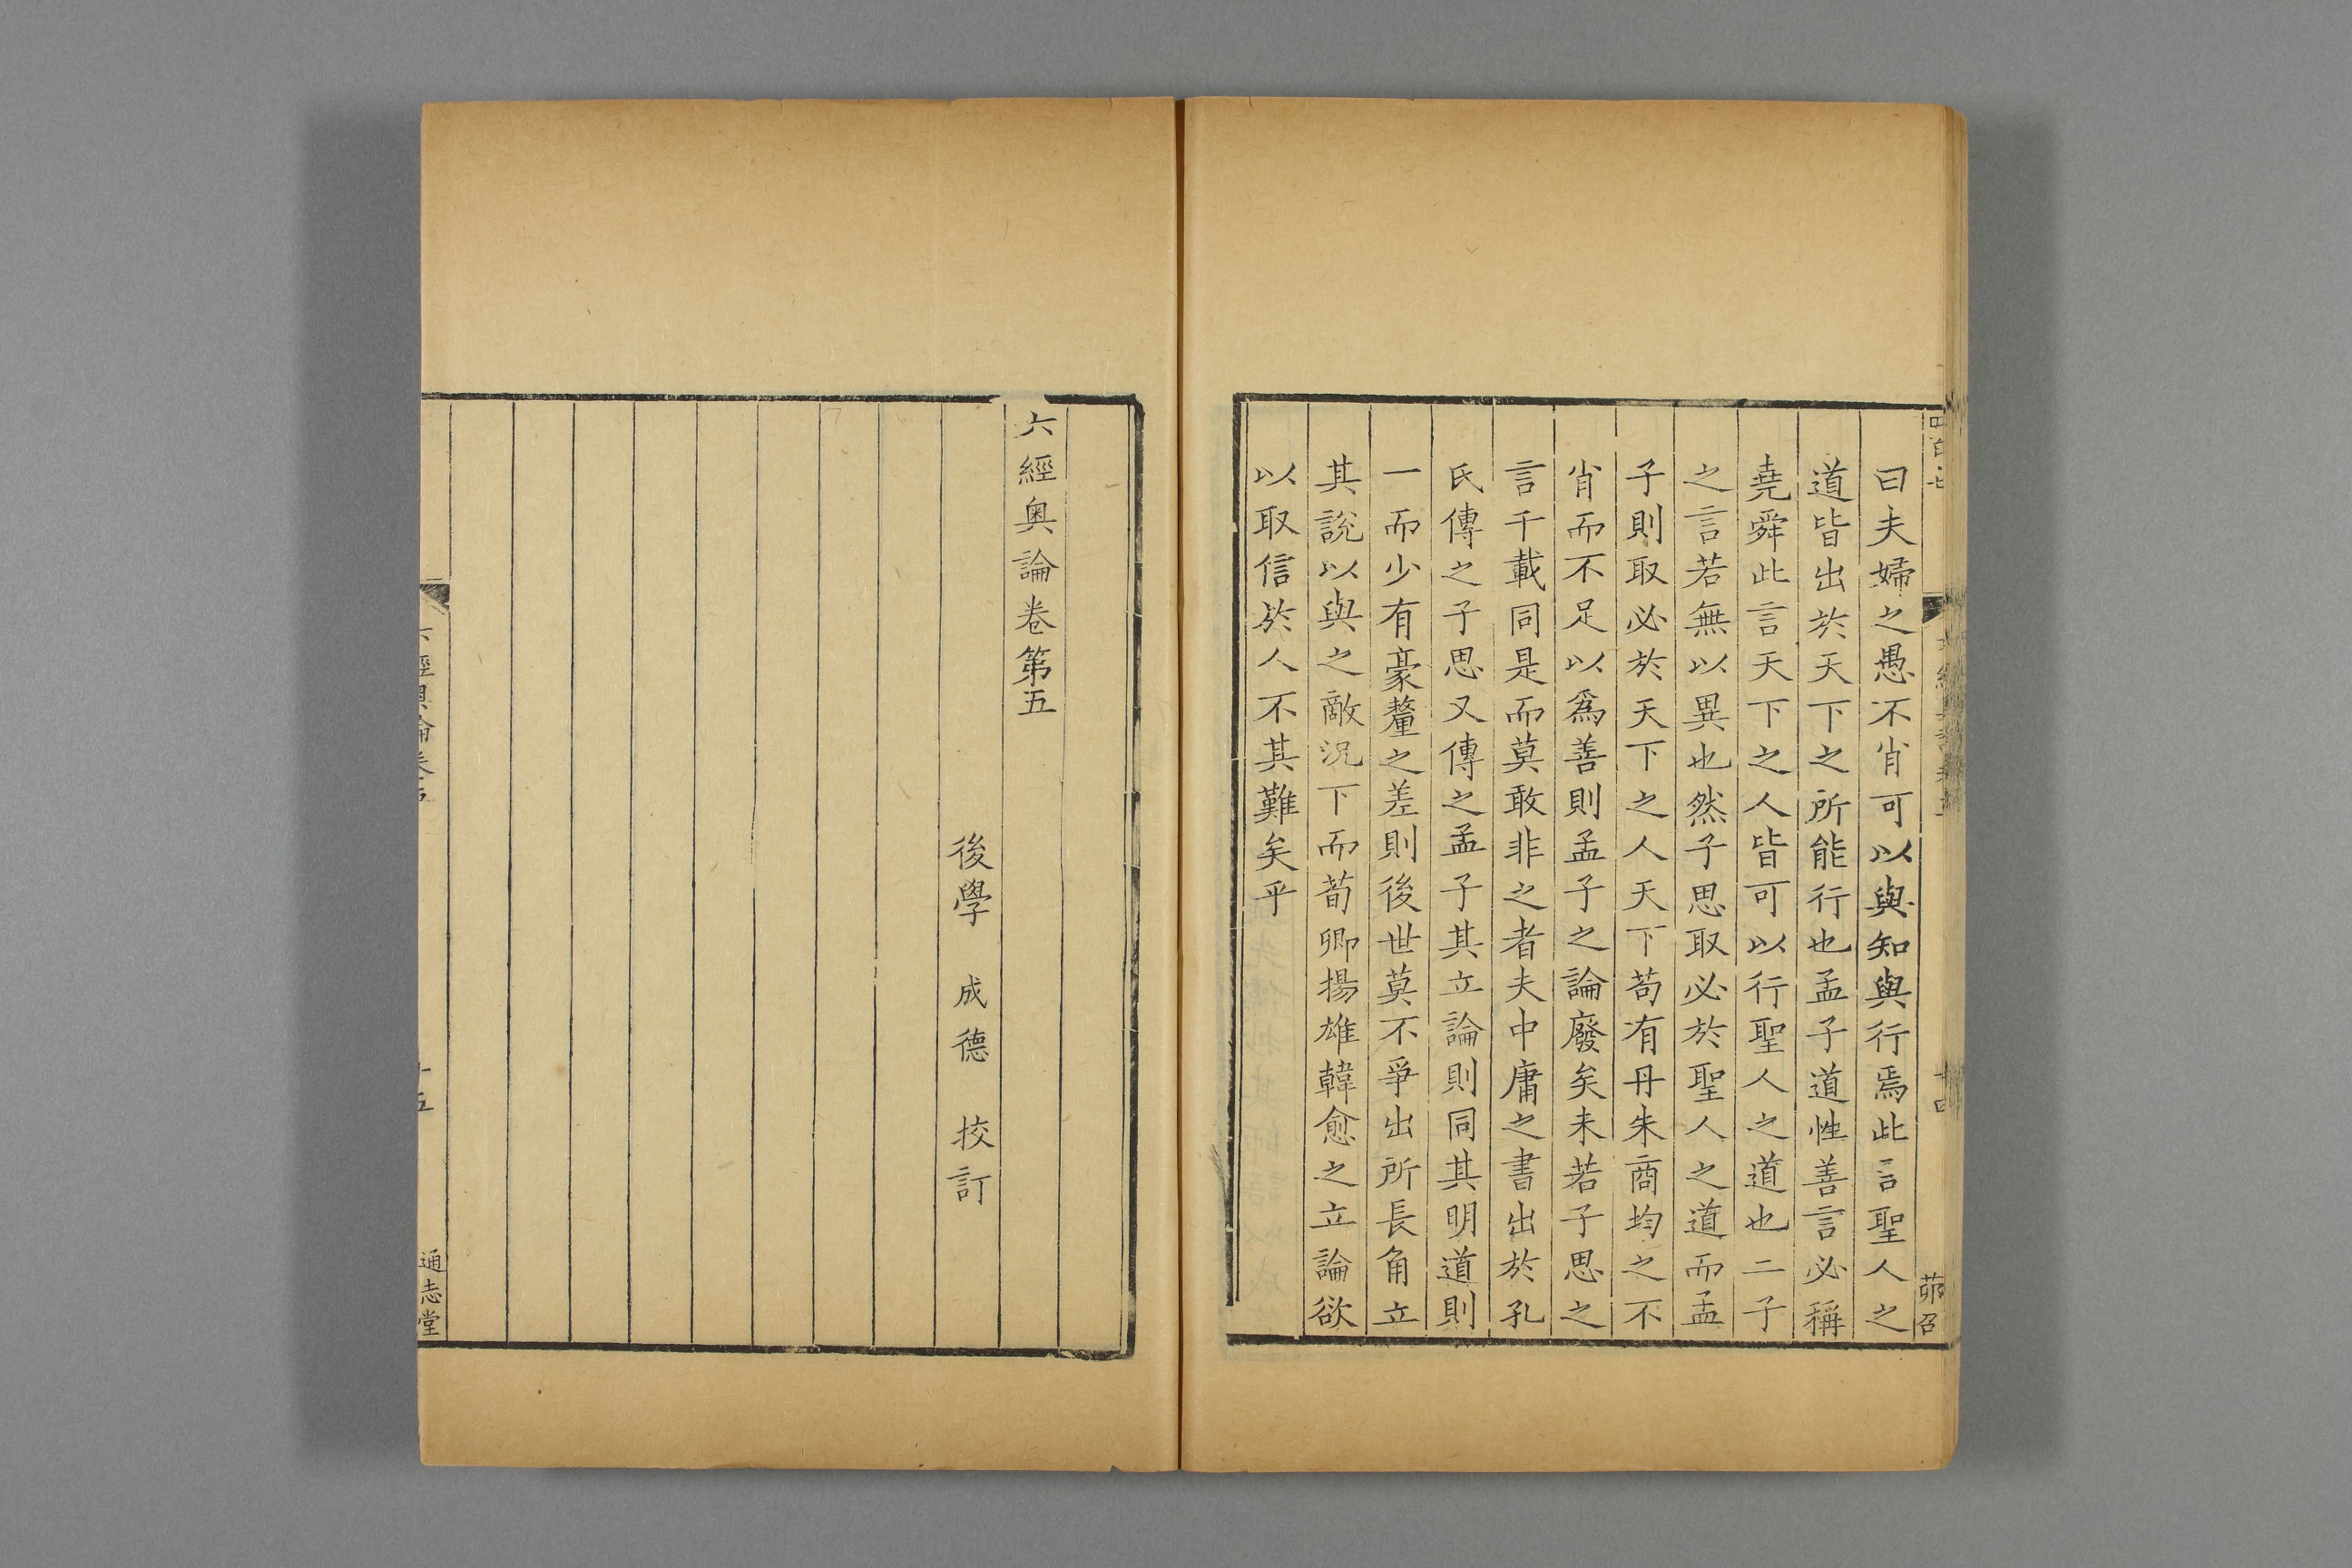 曰夫婦之愚不肖可以與知與行焉此言聖人之
道皆出於天下之所能行也孟子道性善言必稱
堯舜此言天下之人皆可以行聖人之道也二子
之言若無以異也然子思取必於聖人之道而孟
子則取必於天下之人天下苟有丹朱商均之不
肖而不足以爲善則孟子之論廢矣未若子思之
言千載同是而莫敢非之者夫中庸之書出於孔
氏傳之子思又傳之孟子其立論則同其明道則
一而少有豪釐之差則後世莫不爭出所長角立
其說以與之敵況下而荀卿揚雄韓愈之立論欲
以取信於人不其難矣乎
六經奧論卷第五
後學 成德 挍訂
六經奧論卷五
十五
通志堂